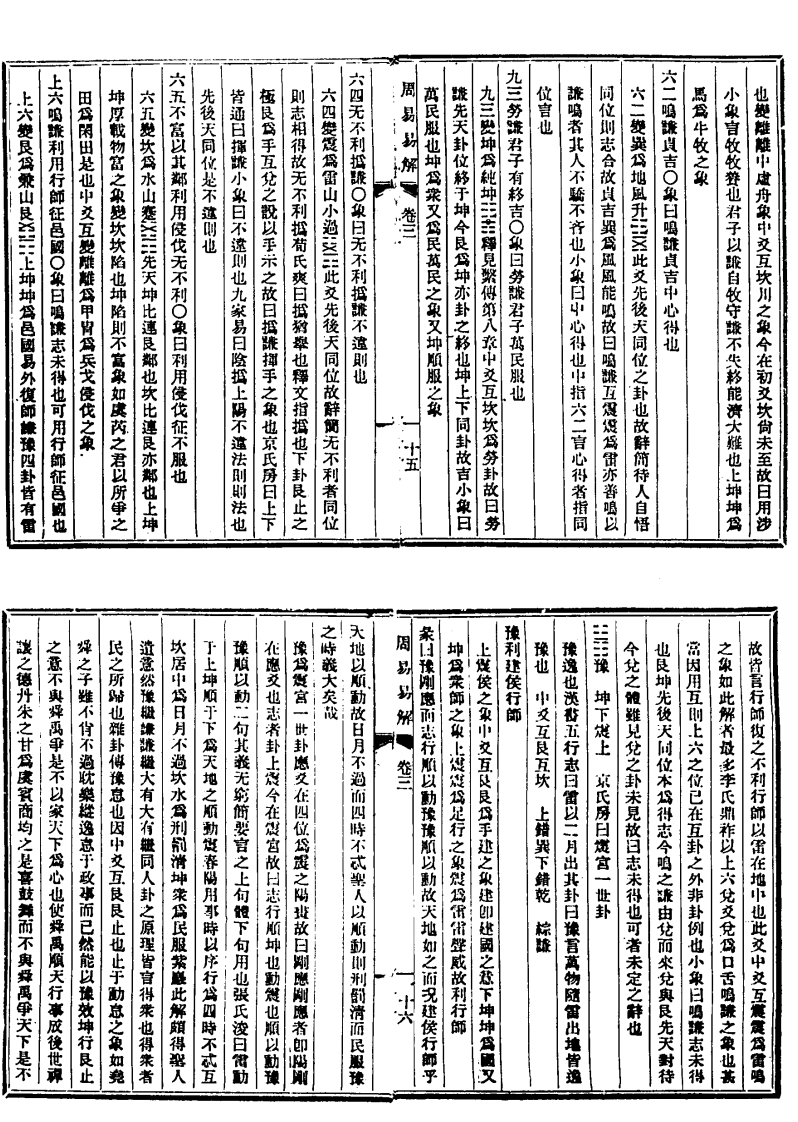 也變離離中虛舟象中爻互坎川之象今在初爻坎尙未至故曰用涉
小象言牧牧養也君子以謙自牧守謙不失終能濟大難也上坤坤爲
馬爲牛牧之象
六二鳴謙貞吉〇象曰鳴謙貞吉中心得也
六二變巽爲地風升此爻先後天同位之卦也故辭簡待人自悟
同位則志合故貞吉巽爲風風能鳴故曰鳴謙互震震爲雷亦善鳴以
謙鳴者其人不驕不吝也小象曰中心得也中指六二言心得者指同
位言也
九三勞謙君子有終吉〇象曰勞謙君子萬民服也
九三變坤爲純坤釋見繫傳第八章中爻互坎坎爲勞卦故曰勞
謙先天卦位終于坤今艮爲坤亦卦之終也坤上下同卦故吉小象曰
萬民服也坤爲衆又爲民萬民之象又坤順服之象
周易易解 卷三 十五
六四无不利撝謙〇象曰无不利撝謙不違則也
六四變震爲雷山小過此爻先後天同位故辭簡无不利者同位
則志相得故无不利撝荀氏爽曰撝猶舉也釋文指撝也下卦艮止之
極艮爲手互兌之說以手示之故曰撝謙揮手之象也京氏房曰上下
皆通曰揮謙小象曰不違則也九家易曰陰撝上陽不違法則則法也
先後天同位是不違則也
六五不富以其鄰利用侵伐无不利〇象曰利用侵伐征不服也
六五變坎爲水山蹇先天坤比連艮鄰也坎比連艮亦鄰也上坤
坤厚載物富之象變坎坎陷也坤陷則不富象如虞芮之君以所爭之
田爲閑田是也中爻互變離離爲甲胄爲兵戈侵伐之象
上六鳴謙利用行師征邑國〇象曰鳴謙志未得也可用行師征邑國也
上六變艮爲兼山艮上坤坤爲邑國易外復師謙豫四卦皆有雷
故皆言行師復之不利行師以雷在地中也此爻中爻互震震爲雷鳴
之象如此解者最多李氏鼎祚以上六兌爻兌爲口舌鳴謙之象也甚
當因用互則上六之位已在互卦之外非卦例也小象曰鳴謙志未得
也艮坤先後天同位本爲得志今鳴之謙由兌而來兌與艮先天對待
今兌之體雖見兌之卦未見故曰志未得也可者未定之辭也
豫 坤下震上 京氏房曰震宮一世卦
豫逸也漢書五行志曰雷以二月出其卦曰豫言萬物隨雷出地皆逸
豫也 中爻互艮互坎 上錯巽下錯乾 綜謙
豫利建侯行師
上震侯之象中爻互艮艮爲手建之象建卽建國之意下坤坤爲國又
坤爲衆師之象上震震爲足行之象震爲雷雷聲威故利行師
彖曰豫剛應而志行順以動豫豫順以動故天地如之而況建侯行師乎
周易易解 卷三 十六
天地以順動故日月不過而四時不忒聖人以順動則刑罰清而民服豫
之時義大矣哉
豫爲震宮一世卦應爻在四位爲震之陽畫故曰剛應剛應者卽陽剛
在應爻也志者卦上震今在震宮故曰志行順坤也動震也順以動豫
豫順以動二句其義无窮簡要言之上句體下句用也張氏浚曰雷動
于上坤順于下爲天地之順動震春陽用事時以序行爲四時不忒互
坎居中爲日月不過坎水爲刑罰清坤衆爲民服紫巖此解頗得聖人
遺意然豫繼謙謙繼大有大有繼同人卦之原理皆言得衆也得衆者
民之所歸也雜卦傳豫怠也因中爻互艮艮止也止于動怠之象如堯
舜之子雖不肖不過耽樂縱逸怠于政事而已然能以豫效坤行艮止
之意不與舜禹爭是不以家天下爲心也使舜禹順天行事成後世禪
讓之德丹朱之甘爲虞賓商均之是喜鼓舞而不與舜禹爭天下是不